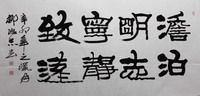 澹泊
明志
寧靜
致遠
辛卯年